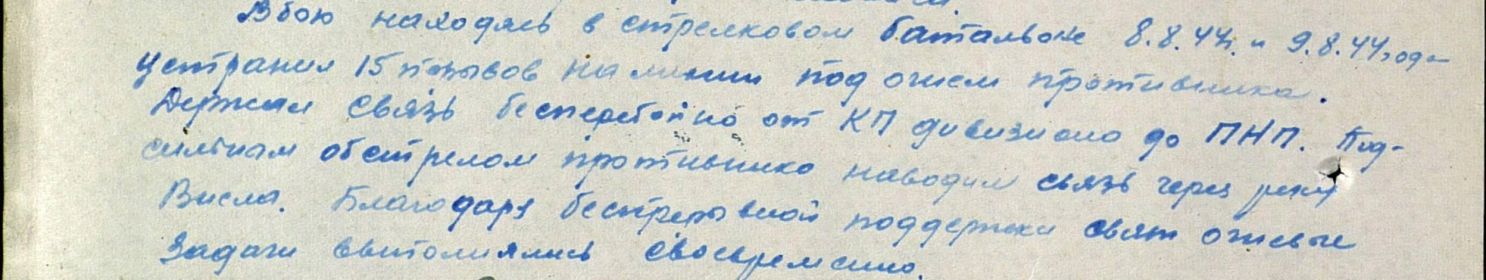 В бою находясь в стрелковом батальоне 8.8.44г. и 9.8.44 года
устранил 15 порывов на линии под огнем противника.
Держал связь бесперебойно от КП дивизиона до ПНП. Под-
сильным обстрелом противника наводил связь через реку
Висла. Благодаря беспрерывной поддержки связи огневые
задачи выполнялись своевременно.